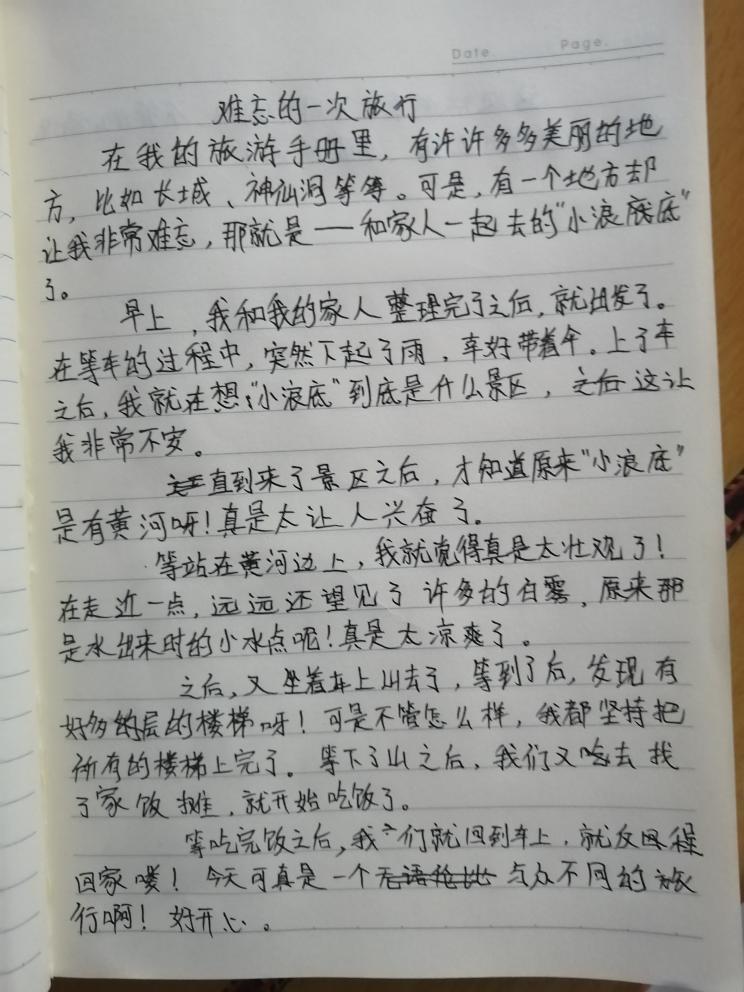 Date.    Page.
难忘的一次旅行
在我的旅游手册里，有许许多多美丽的地
方，比如长城、神仙洞等等。可是，有一个地方却
让我非常难忘，那就是——和家人一起去的"小浪底"
了。
早上，我和我的家人整理完了之后，就出发了。
在等车的过程中，突然下起了雨，幸好带着伞。上了车
之后，我就在想："小浪底"到底是什么景区，这让
我非常不安。
直到来了景区之后，才知道原来"小浪底"
是有黄河呀！真是太让人兴奋了。
等站在黄河边上，我就觉得真是太壮观了！
在走近一点，远远还望见了许多的白雾，原来那
是水出来时的小水点呢！真是太凉爽了。
之后，又坐着车上山去了，等到了后，发现有
好多层的楼梯呀！可是不管怎么样，我都坚持把
所有的楼梯上完了。等下了山之后，我们又去找
了家饭摊，就开始吃饭了。
等吃完饭之后，我们就回到车上，就反回程
回家喽！今天可真是一个与众不同的旅
行啊！好开心。